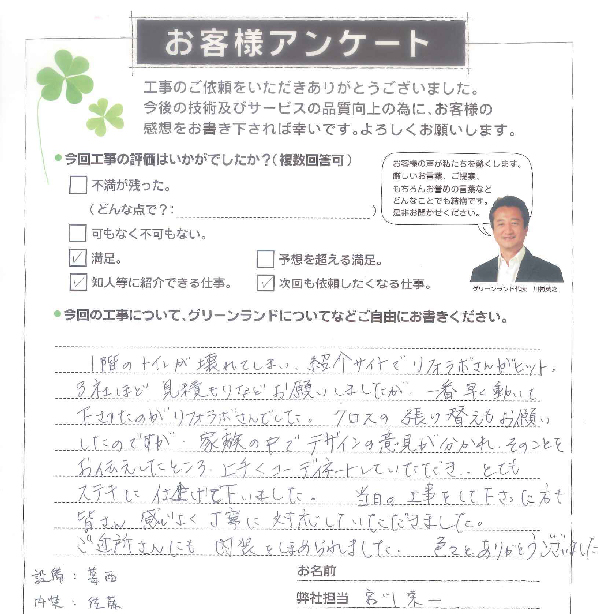 お客様アンケート
工事のご依頼をいただきありがとうございました。
今後の技術及びサービスの品質向上の為に、お客様の
感想をお書き下されば幸いです。よろしくお願いします。
●今回工事の評価はいかがでしたか?(複数回答可)
□不満が残った。
(どんな点で?: )
□可もなく不可もない。
☑満足。
□予想を超える満足。
☑知人等に紹介できる仕事。
☑次回も依頼したくなる仕事。
お客様の声が私たちを動くします。
厳しいお言葉、ご提案、
もちろんお誉めの言葉など
どんなことでも結構です。
是非お聞かせください。
グリーンランド代表
●今回の工事について、グリーンランドについてなどご自由にお書きください。
1階のトイレが壊れてしまい、紹介サイトでリフォラボさんがヒット。
3社ほど見積もりなどお願いしましたが、一番早く動いて
下さったのがリフォラボさんでした。クロスの張り替えもお願い
したのですが、家族の中でデザインの意見が分かれ、そのことを
お伝えしたところ、上手くコーディネートしていただき、とても
ステキに仕上げて下いました。当日の工事をして下さった方も
皆さん感じよく丁寧に対応していただきました。
ご近所さんにも内装をほめられました。色々とありがとうございました
設備:葛西
内装:佐藤
お名前
弊社担当